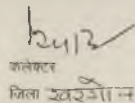 कलेक्टर
जिला खरगोन